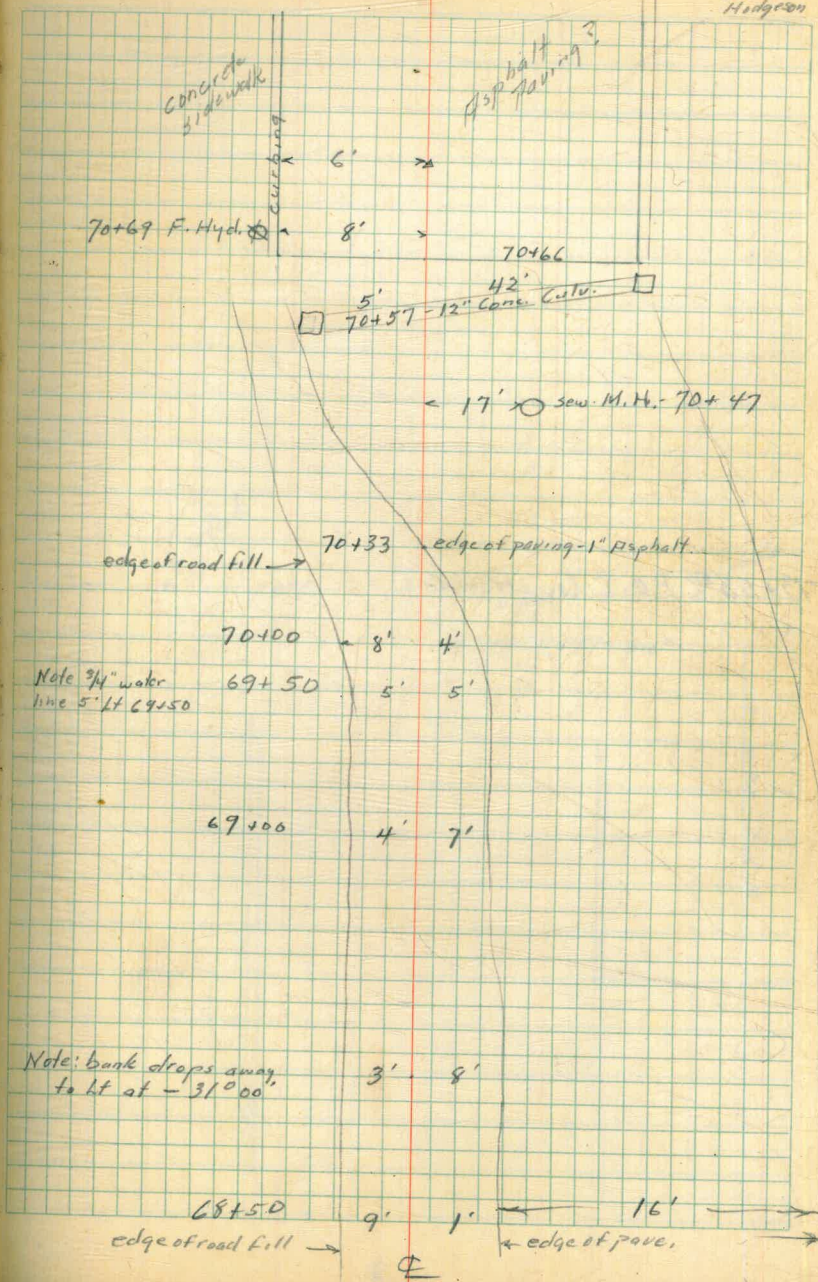 Hodgeson
concrete
sidewalk
Asphalt
Paving?
curbing
6'
70+69 F. Hyd.
8'
70+66
5' 42'
70+57 - 12" Conc. Culv.
17' Sew. M.H. - 70+47
70+33 edge of paving - 1" Asphalt
edge of road fill
70+00 8' 4'
69+50 5' 5'
Note 3/4" water
line 5' Lt 69+50
69+00 4' 7'
Note: bank drops away
to Lt at - 31°00'
3' 8'
68+50 9' 1' 16'
edge of road fill
edge of pave.
℄